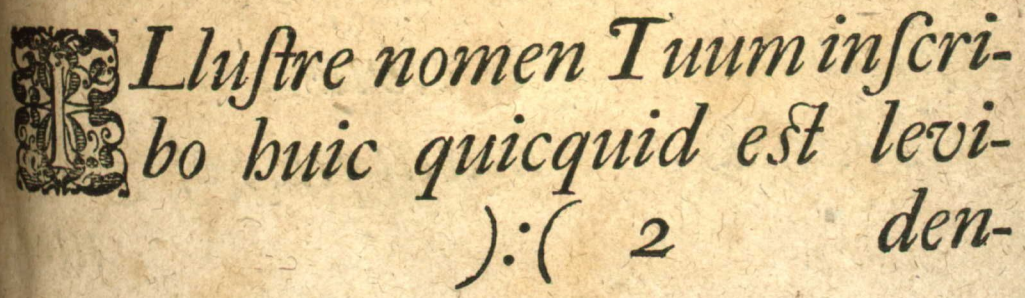 ILluſtre nomen Tuum inſcri-
bo huic quicquid eſt levi-
):( 2 den-